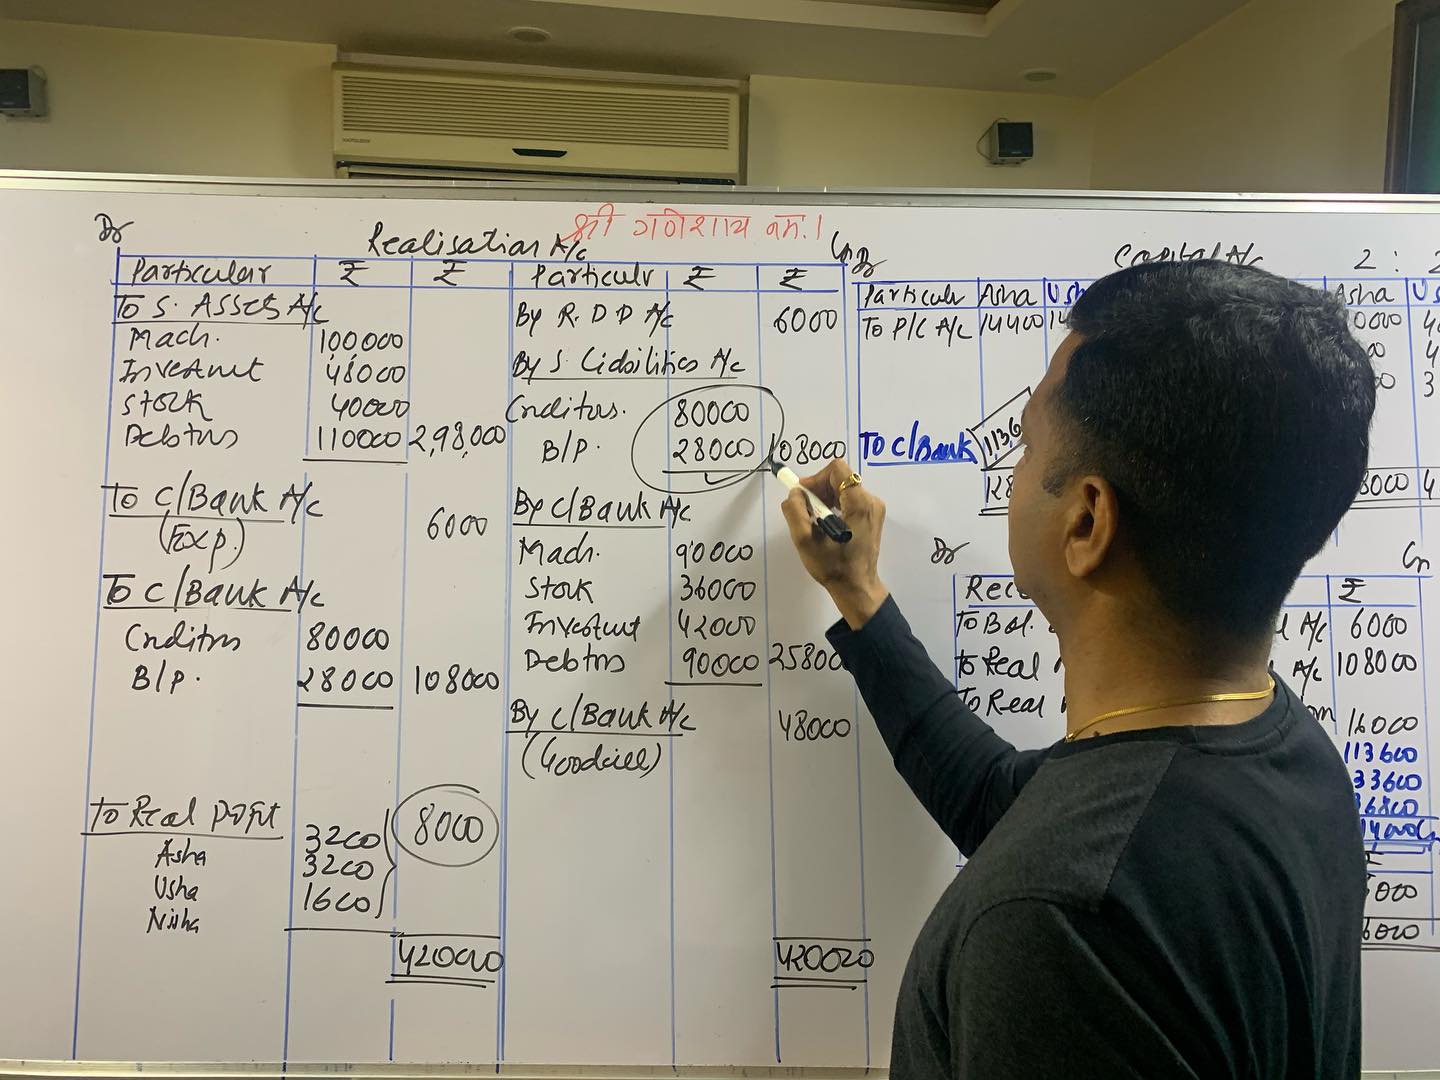 श्री गणेशाय नमः।
Dr Realisation A/c Cr
Particular ₹ ₹ Particulr ₹ ₹
To S. Assets A/c
Mach. 100000
Investmt 48000
Stock 40000
Debtors 110000 2,98,000
To C/Bank A/c
(Exp.) 6000
To C/Bank A/c
Crditors 80000
B/P. 28000 108000
To Real profit 8000
Asha 3200
Usha 3200
Nisha 1600
420000
By R.D.D A/c 6000
By S. Liabilities A/c
Crditors. 80000
B/P. 28000 108000
By C/Bank A/c
Mach. 90000
Stock 36000
Investmt 42000
Debtors 90000 25800
By C/Bank A/c 48000
(Goodwill)
420000
Dr Capital A/c 2:2
Particulr Asha Ush Asha Us
To P/L A/c 14400 14 0000 40
00 4
00 3
To C/Bank 113,6
128 8000 4
Dr Cr
Rec ₹
To Bal. A/c 6000
To Real A/c 108000
To Real 16000
113600
33600
36800
14000
000
6000